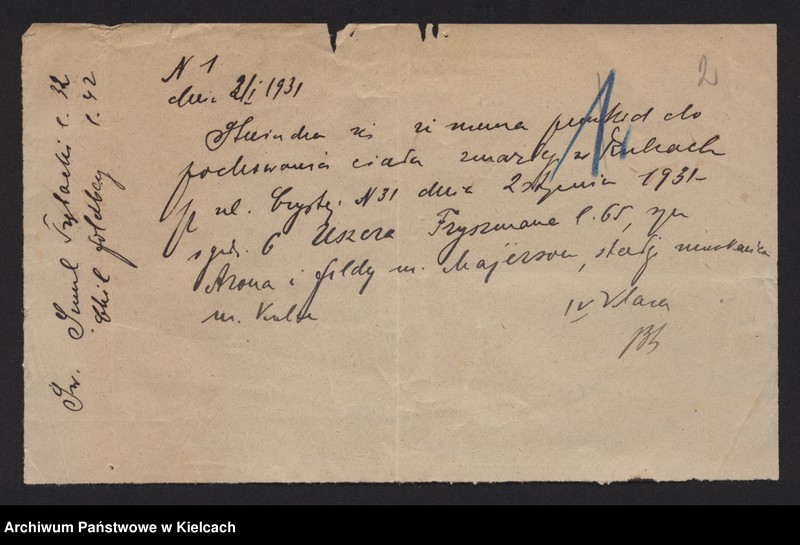 N 1
dnia 2/I 1931
2
Stwierdza się że niema przeszkód do
pochowania ciała zmarłego w Kielcach
ul. Czysta N 31 dnia 2 stycznia 1931
o godz. 6 Uszera Fryszmana l. 65, syn
Arona i Gildy m. Majerson, stały mieszkaniec
m. Kielc
IV klasa
Św. Szmul l. 32
Chil Goldberg l. 42
Archiwum Państwowe w Kielcach